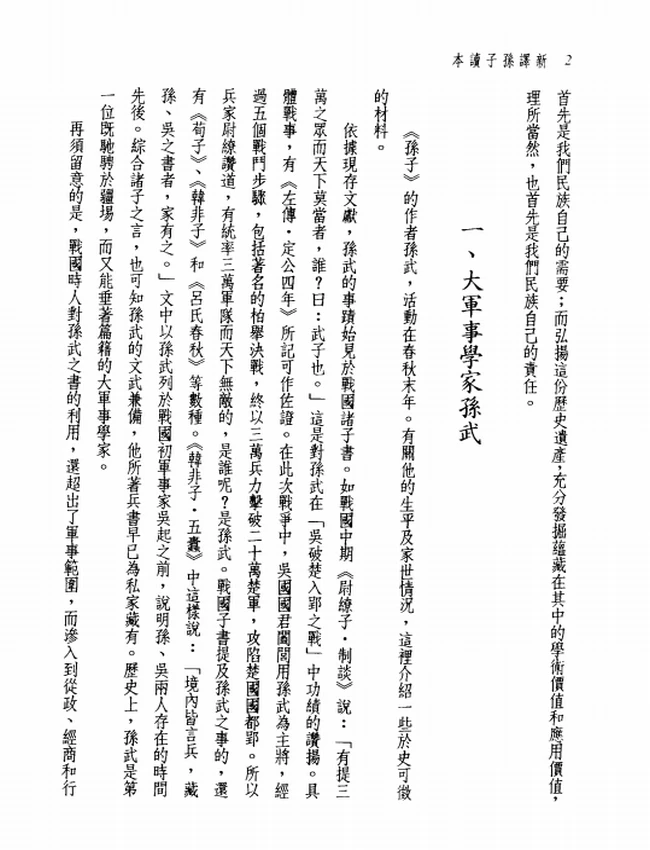 2 新譯孫子讀本
首先是我們民族自己的需要；而弘揚這份歷史遺產，充分發掘蘊藏在其中的學術價值和應用價值，
理所當然，也首先是我們民族自己的責任。
一、大軍事學家孫武
《孫子》的作者孫武，活動在春秋末年。有關他的生平及家世情況，這裡介紹一些於史可徵
的材料。
依據現存文獻，孫武的事蹟始見於戰國諸子書。如戰國中期《尉繚子·制談》說：「有提三
萬之眾而天下莫當者，誰？曰：武子也。」這是對孫武在「吳破楚入郢之戰」中功績的讚揚。具
體戰事，有《左傳·定公四年》所記可作佐證。在此次戰爭中，吳國國君闔閭用孫武為主將，經
過五個戰鬥步驟，包括著名的柏舉決戰，終以三萬兵力擊破二十萬楚軍，攻陷楚國國都郢。所以
兵家尉繚讚道，有統率三萬軍隊而天下無敵的，是誰呢？是孫武。戰國子書提及孫武之事的，還
有《荀子》、《韓非子》和《呂氏春秋》等數種。《韓非子·五蠹》中這樣說：「境內皆言兵，藏
孫、吳之書者，家有之。」文中以孫武列於戰國初軍事家吳起之前，說明孫、吳兩人存在的時間
先後。綜合諸子之言，也可知孫武的文武兼備，他所著兵書早已為私家藏有。歷史上，孫武是第
一位既馳騁於疆場，而又能垂著篇籍的大軍事學家。
再須留意的是，戰國時人對孫武之書的利用，還超出了軍事範圍，而滲入到從政、經商和行